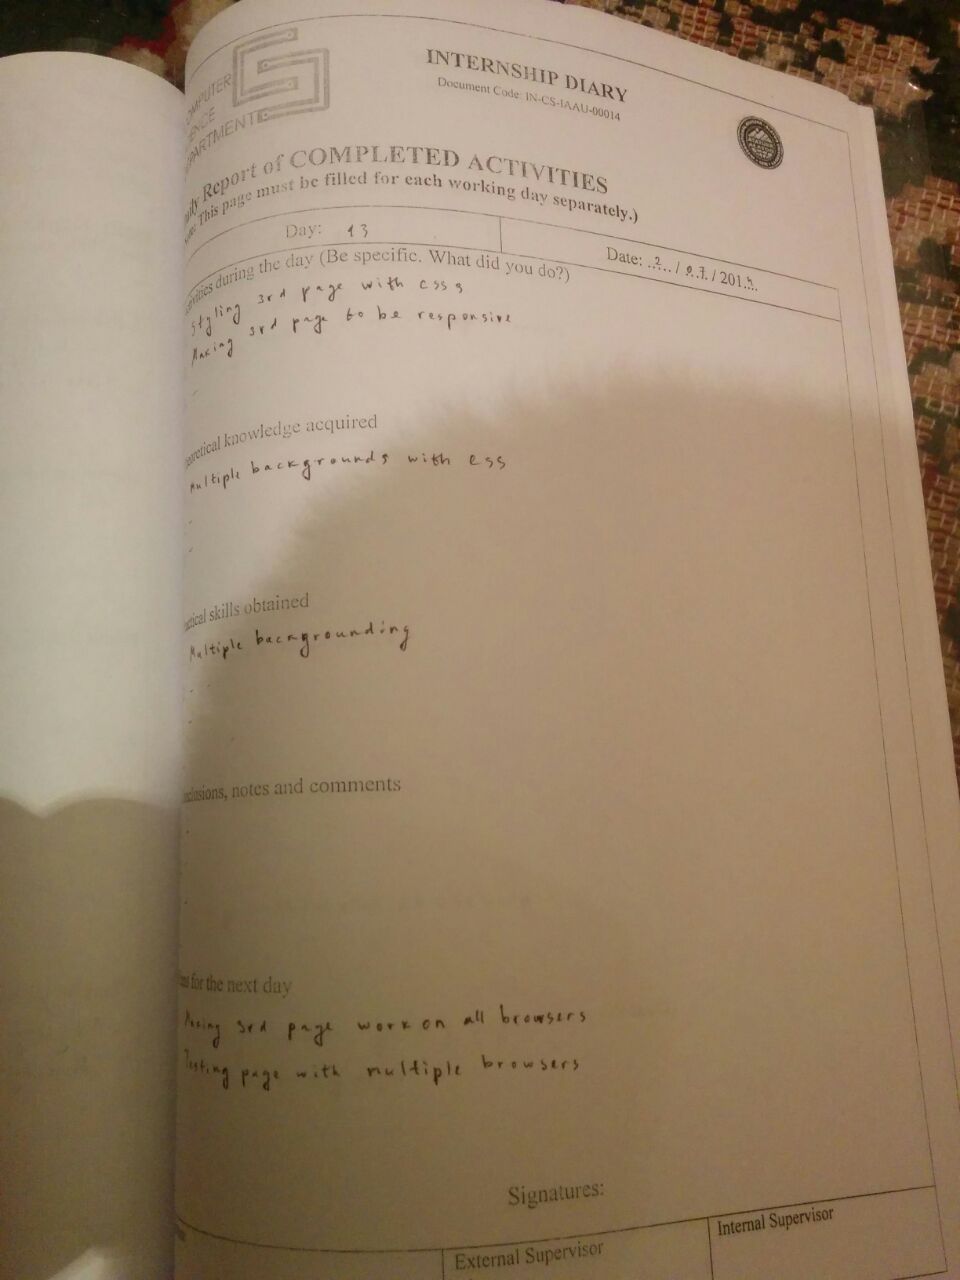 COMPUTER
DEPARTMENT
INTERNSHIP DIARY
Document Code: IN-CS-IAAU-00014
Report of COMPLETED ACTIVITIES
This page must be filled for each working day separately.)
Day: 13
Date: 2 / 07 / 201
during the day (Be specific. What did you do?)
Styling 3rd page with css
Making 3rd page to be responsive
knowledge acquired
Multiple backgrounds with css
skills obtained
Multiple backgrounding
notes and comments
for the next day
Making 3rd page work on all browsers
Testing page with multiple browsers
Signatures:
External Supervisor
Internal Supervisor